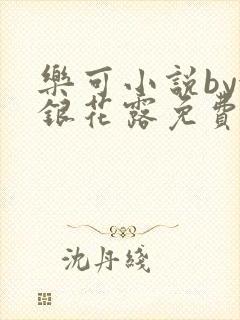 樂可小說by
銀花露免費
沈丹綫